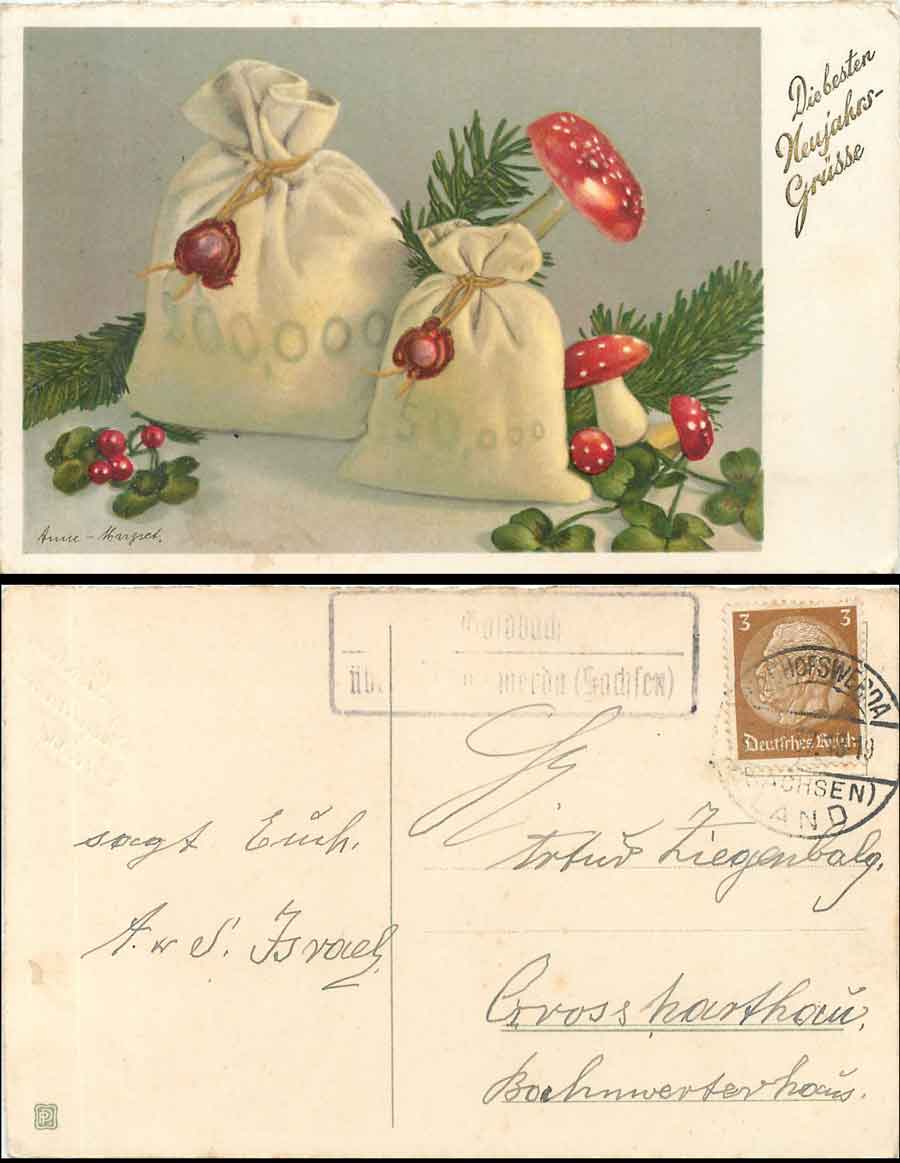 Die besten
Neujahrs-
Grüsse
100,000
50,000
Anne-Margret.
Goldbach
über Bischofswerda (Sachsen)
3 3
Deutsches Reich
BISCHOFSWERDA
(SACHSEN)
LAND
sagt Euch.
A. u S. Israel
Artur Ziegenbalg.
Grossharthau.
Bahnwärterhaus.